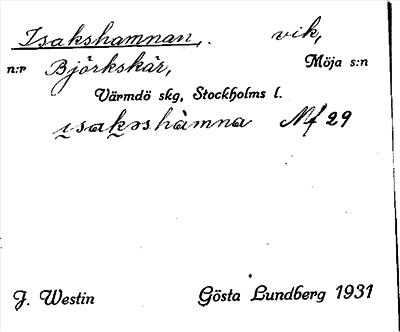 Isakshamnan, vik,
n:r Björkskär, Möja s:n
Värmdö skg, Stockholms l.
ɩsakəshàmna Nf 29
J. Westin Gösta Lundberg 1931